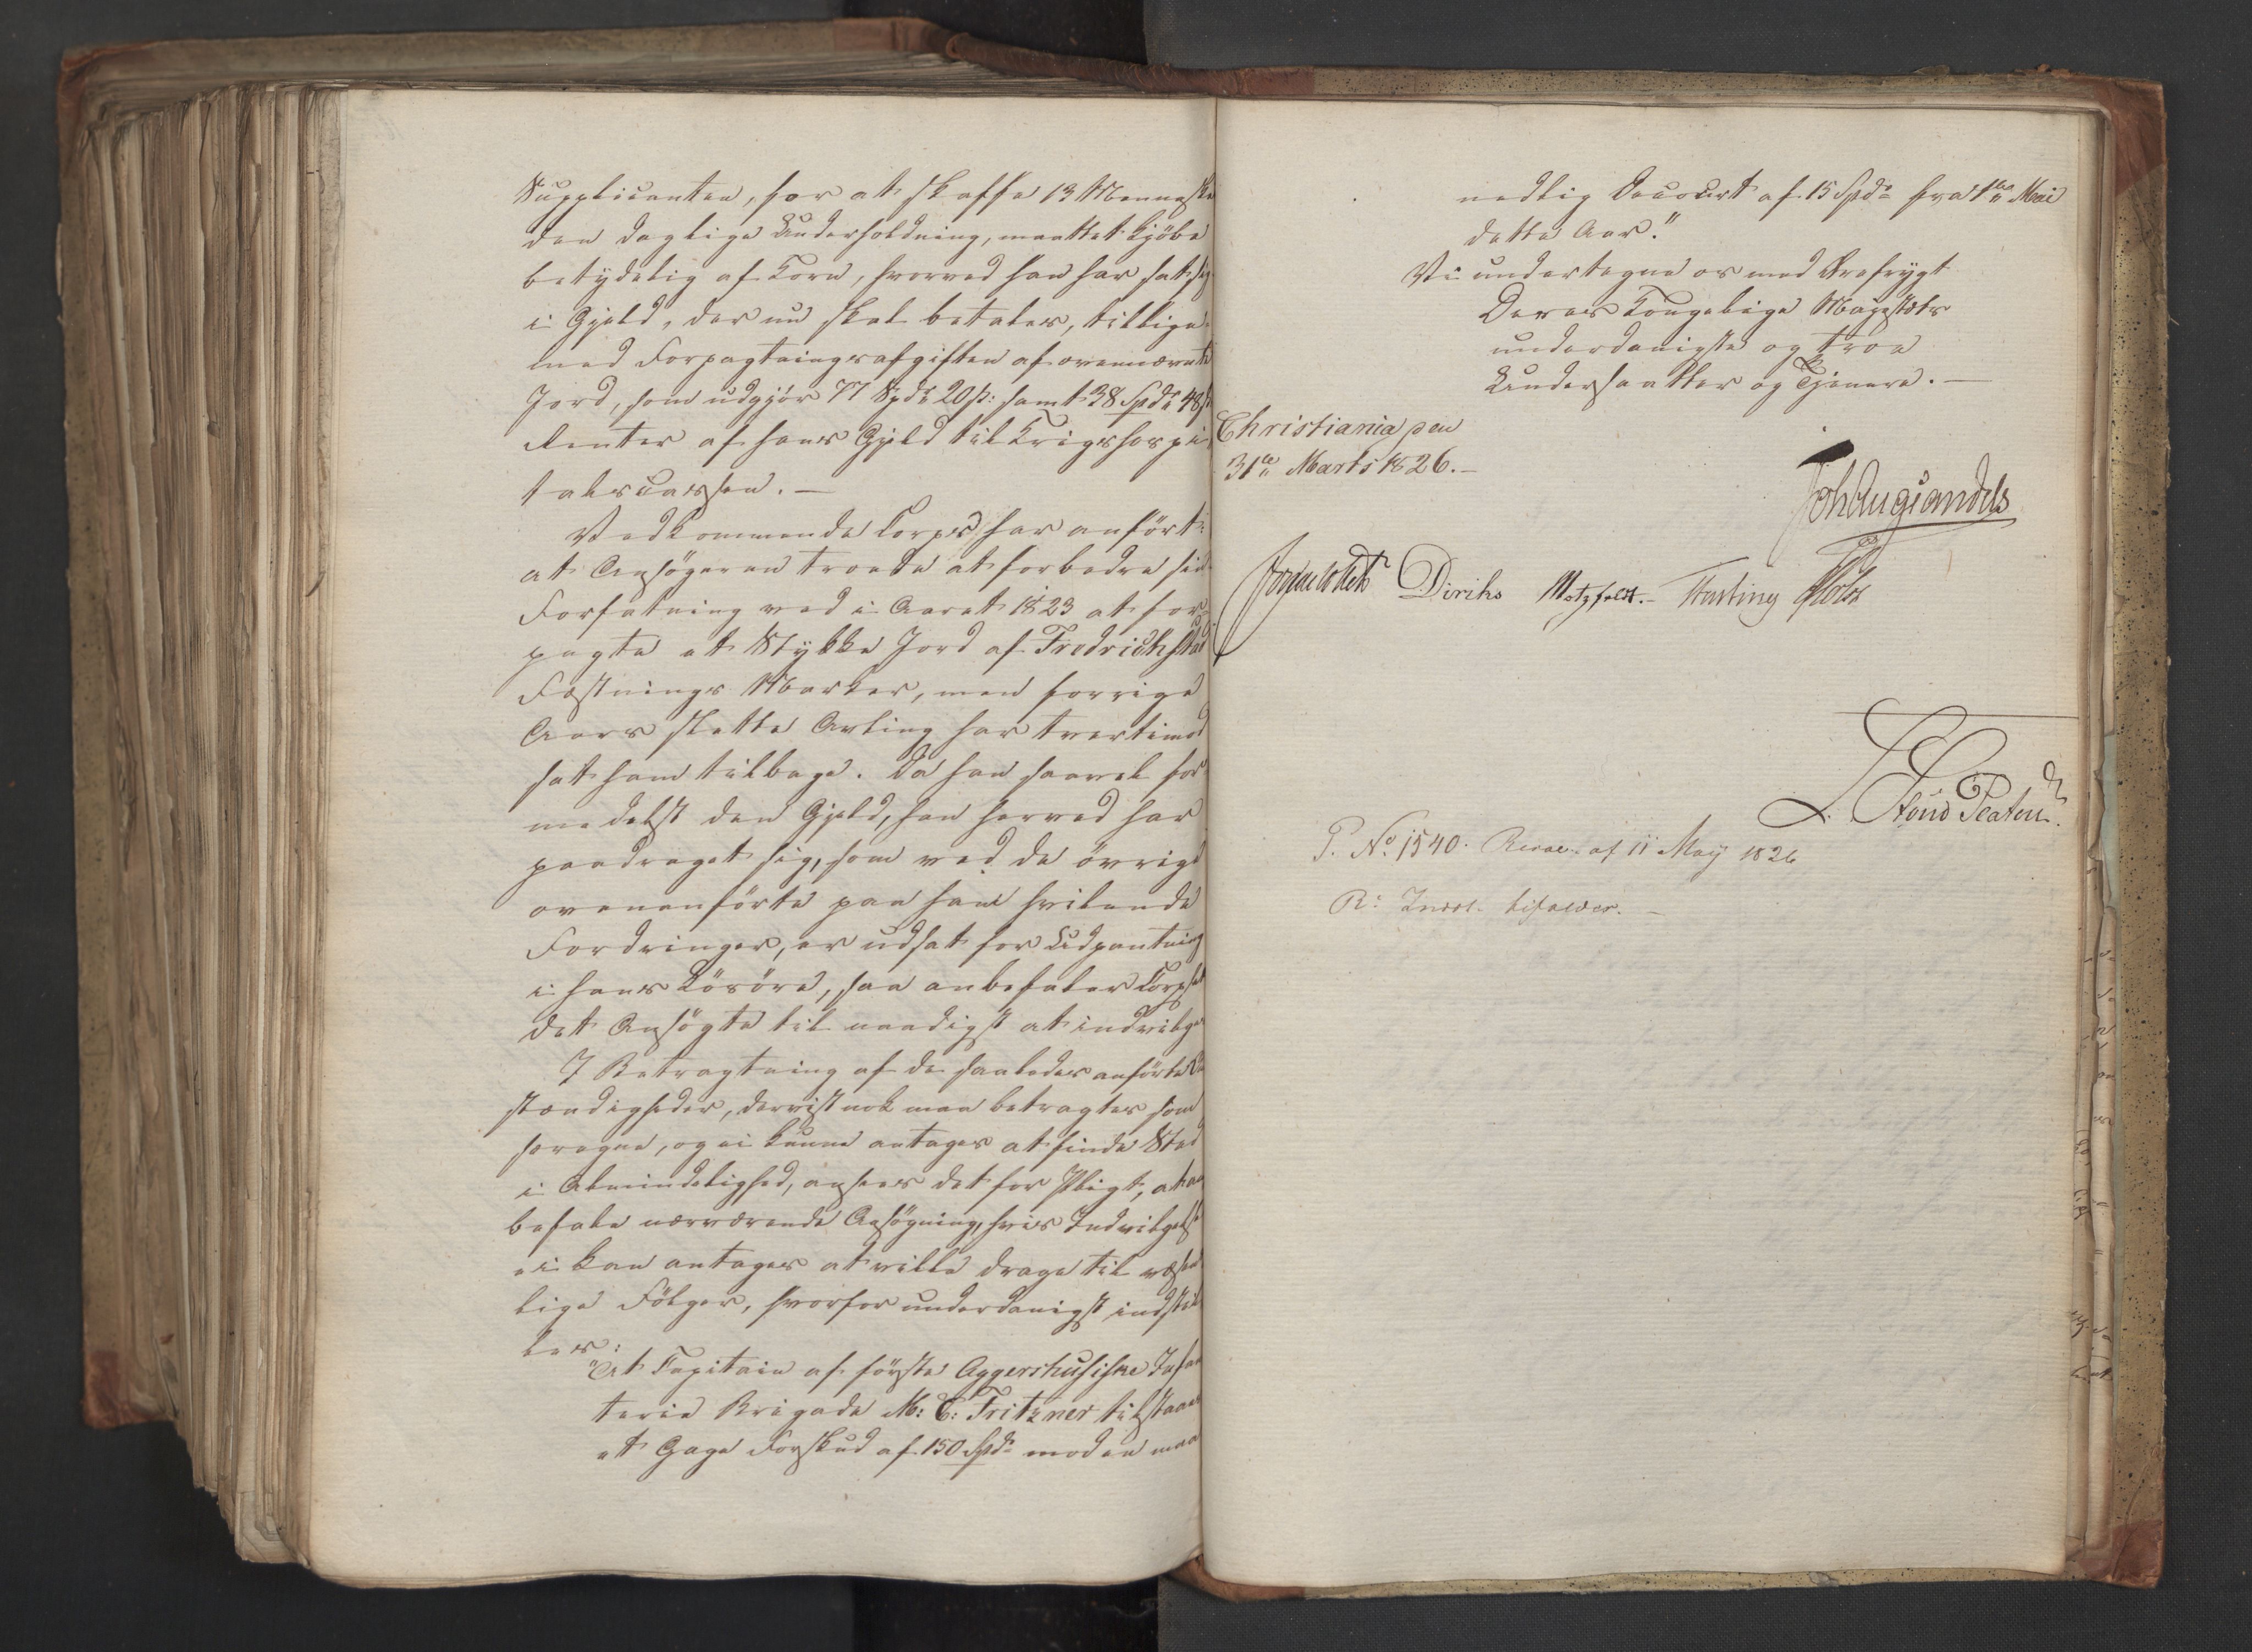 Supplicanten, for at skaffe 13 Mennesker
den daglige Underholdning, maattet kjöbe
betydelig af Korn, hvorved han har sat sig
i Gjeld, der nu skal betales, tillige-
med Forpagtningsafgiften af ovennævnte
Jord, som udgjör 77 Spd 20 s: samt 38 Spd 48 s
Renter af hans Gjeld til Krigshospi-
talscassen. —
Vedkommende Corps har anfört:
at Ansögeren troede at forbedre sin
Forfatning ved i Aaret 1823 at for-
pagte et Stykke Jord af Fredrichstad
Fæstnings Marker, men forrige
Aars slette Avling har tvertimod
sat ham tilbage. Da han saavel for-
medelst den Gjeld, han herved har
paadraget sig, som ved de övrige
ovenanförte paa ham hvilende
Fordringer, er udsat for Udpantning
i hans Lösöre, saa anbefaler Corpset
det Ansögte til naadigst at indvilges
I Betragtning af de saaledes anförte Om-
stændigheder, der vistnok maa betragtes som
særegne, og ei kunne antages at finde Sted
i Almindelighed, ansees det for Pligt, at an-
befale nærværende Ansögning, hvis Indvilgelse
ei kan antages at ville drage til væsent-
lige Fölger, hvorfor underdanigst indstil-
les:
"At Capitain af förste Aggershusiske Infan-
terie Brigade M: C: Fritzner tilstaaes
et Gage Forskud af 150 Spd mod en maa-
nedlig Decourt af 15 Spd fra 1ste Mai
dette Aar."
Vi undertegne os med Ærefrygt
Deres Kongelige Majestæts
underdanigste og troe
Undersaatter og Tjenere. —
Christiania den
31te Marts 1826. —
Joh Aug Sandels
Diriks Motzfeldt. — Fasting Holst
P. No. 1540. Resol. af 11 May 1826
R: Indst. bifaldes. —